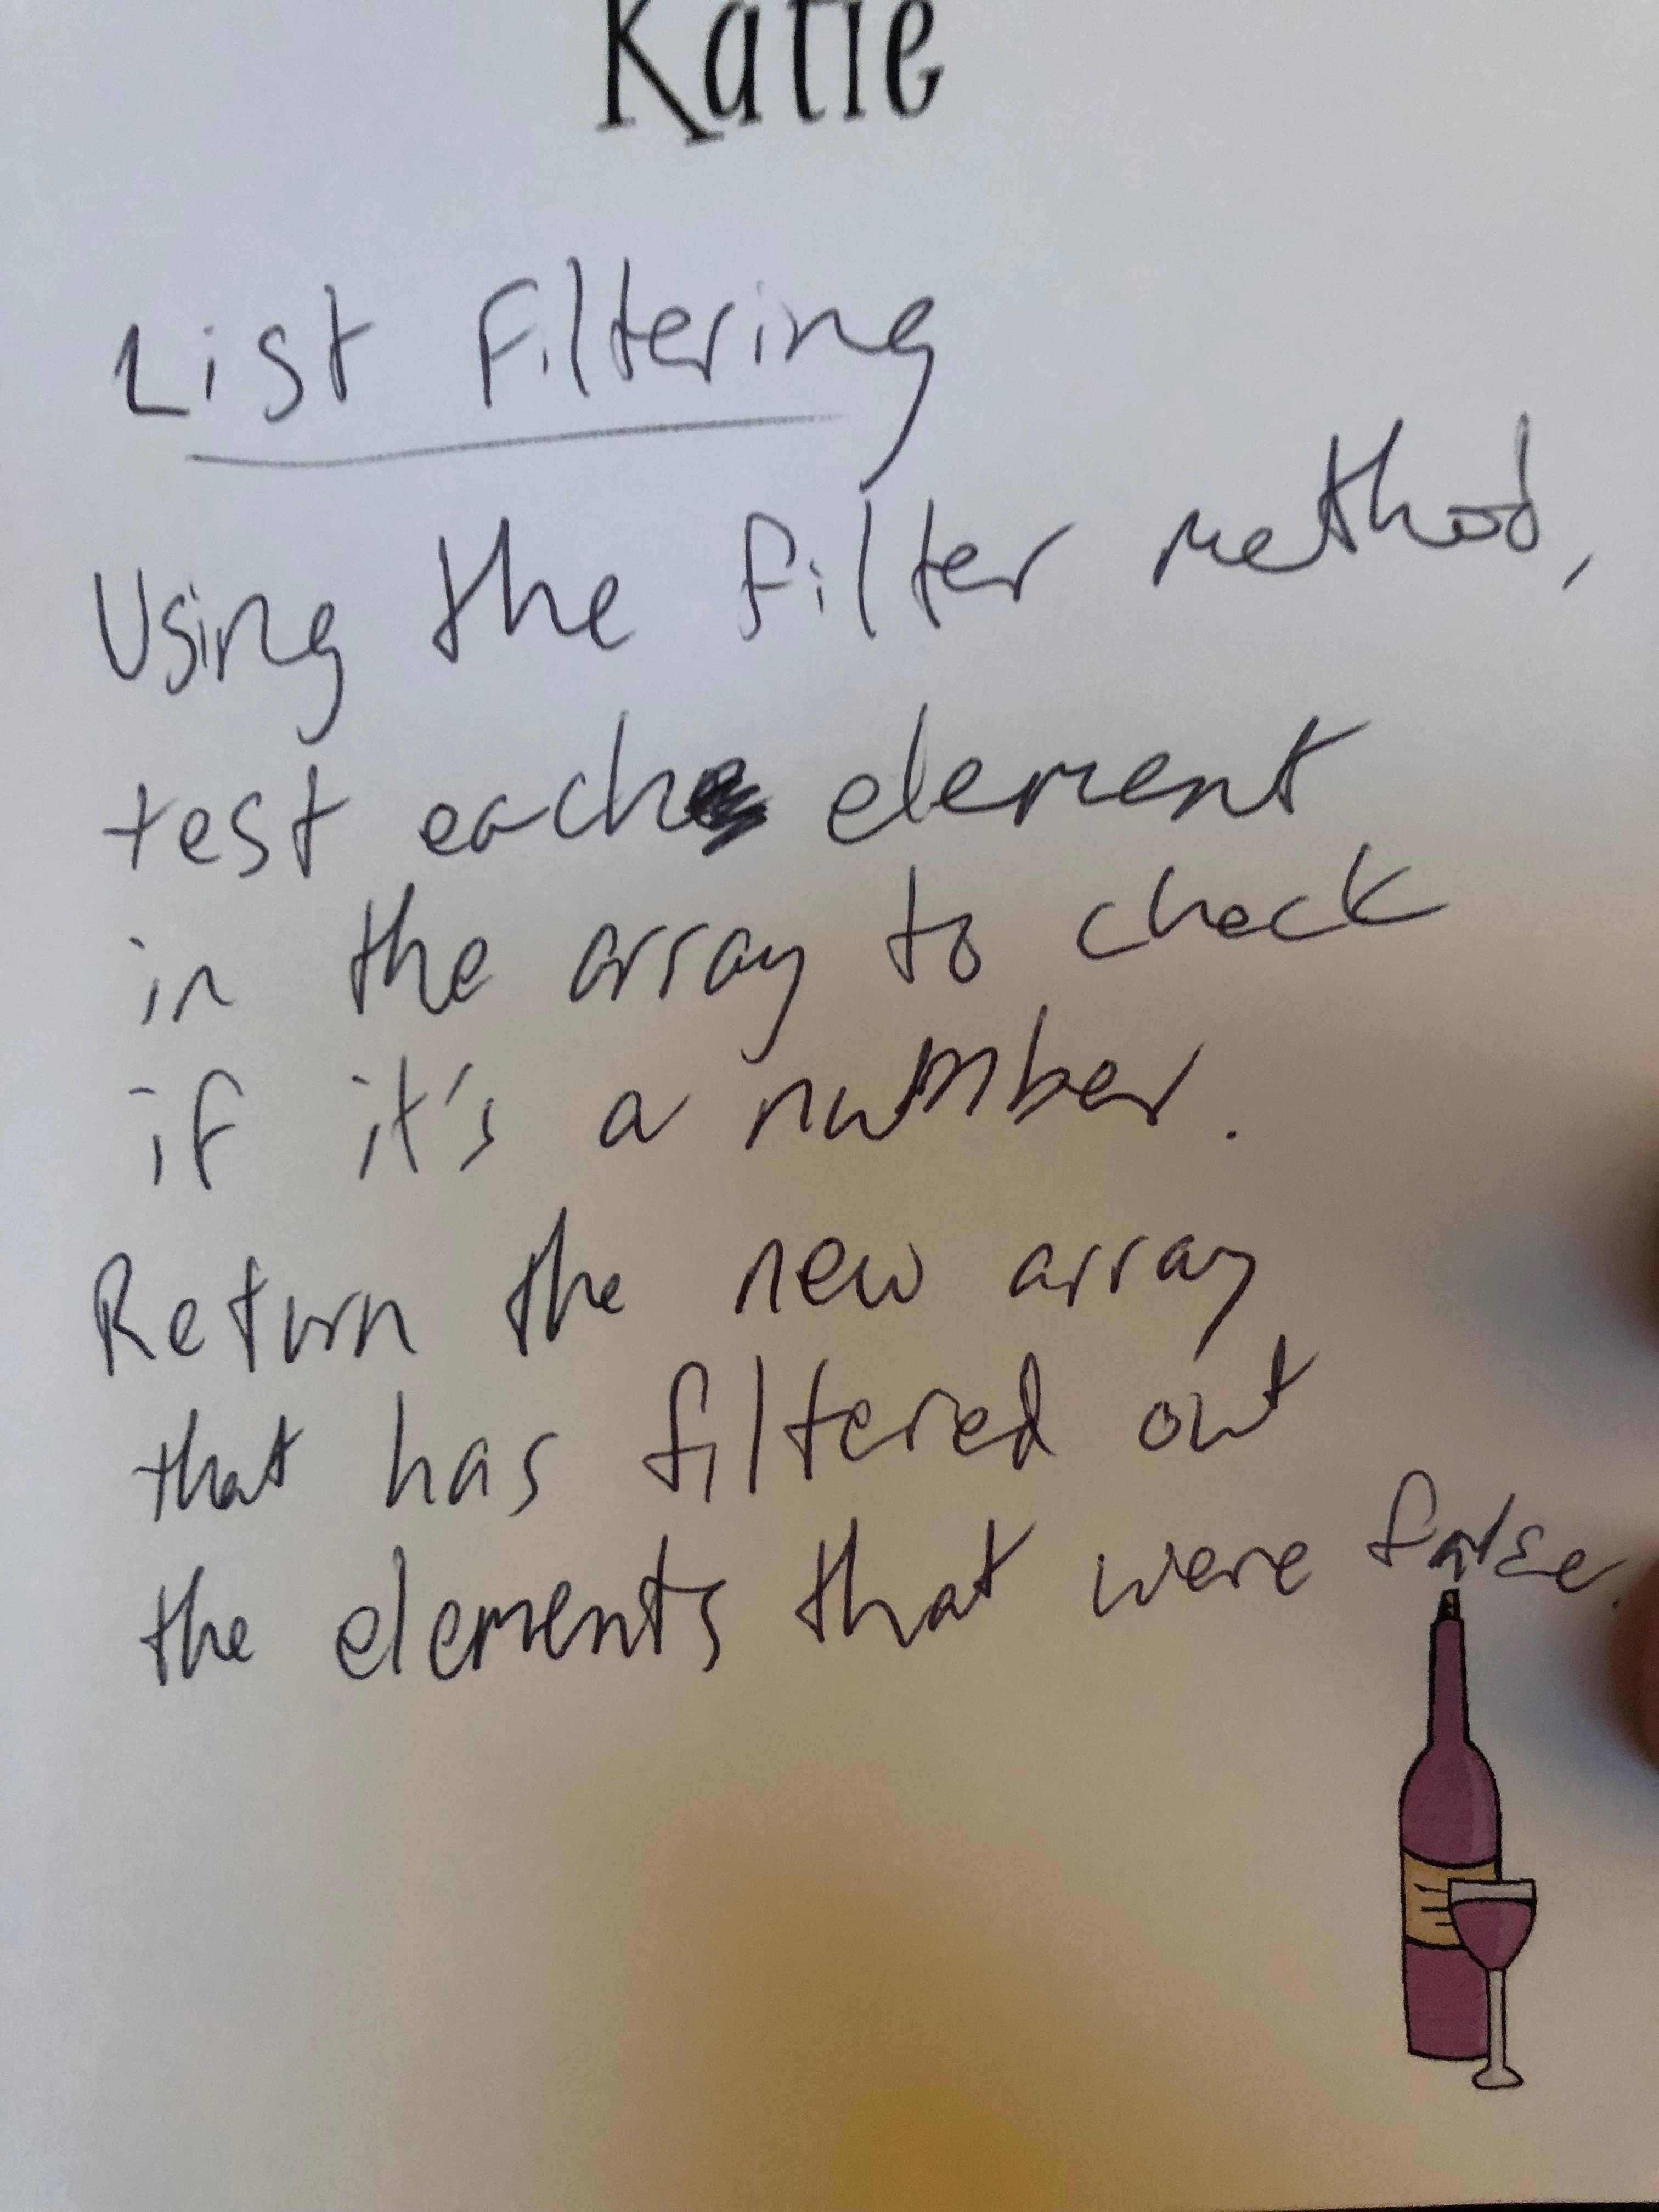 Katie
List Filtering
Using the filter method,
test each element
in the array to check
if it's a number.
Return the new array
that has filtered out
the elements that were false.